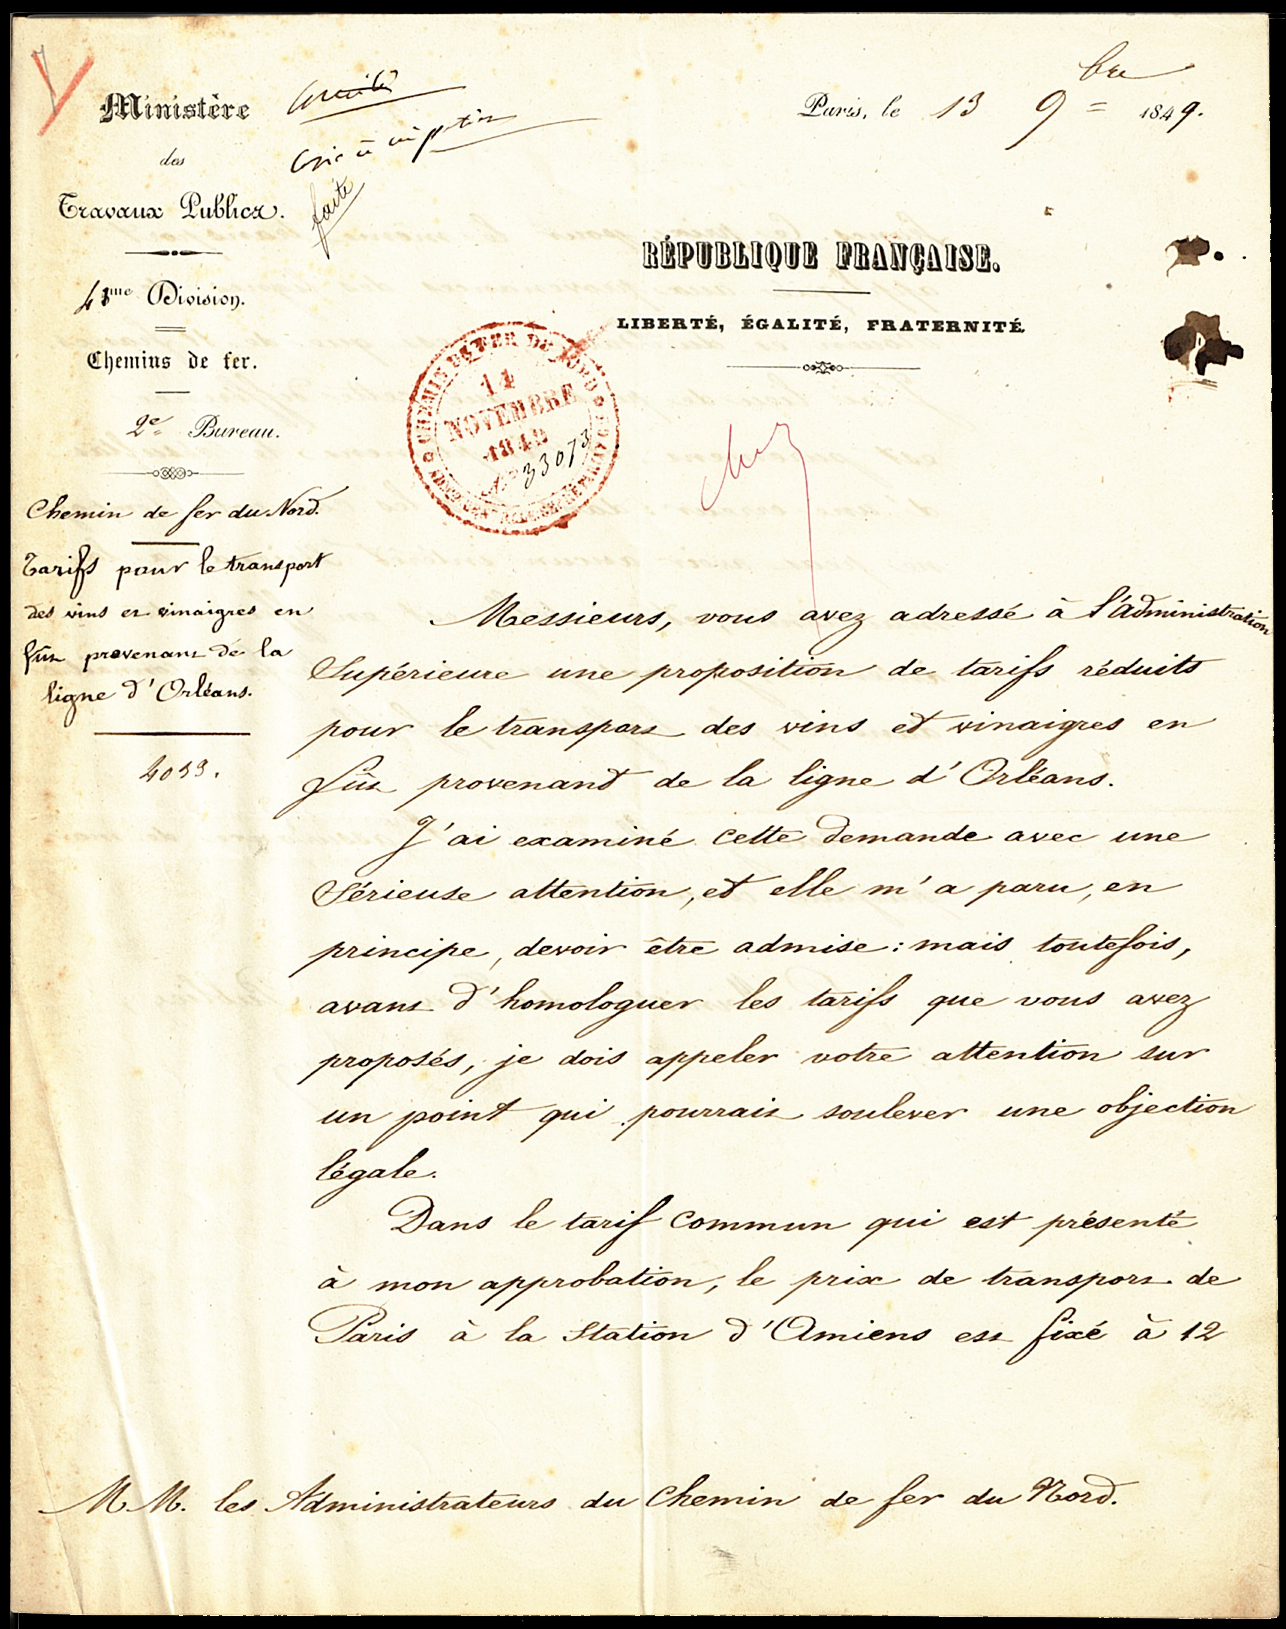 Ministère
des
Travaux Publics.
4me Division.
Chemins de fer.
2e Bureau.
Chemin de fer du Nord.
Tarifs pour le transport
des vins et vinaigres en
fûts provenant de la
ligne d'Orléans.
4053.
Comité
Copie
faite
Paris, le 13 9bre 1849.
RÉPUBLIQUE FRANÇAISE.
LIBERTÉ, ÉGALITÉ, FRATERNITÉ
CHEMIN DE FER DU NORD
14
NOVEMBRE
1849
33073
Messieurs, vous avez adressé à l'administration
Supérieure une proposition de tarifs réduits
pour le transport des vins et vinaigres en
fûts provenant de la ligne d'Orléans.
J'ai examiné cette demande avec une
Sérieuse attention, et elle m'a paru, en
principe, devoir être admise : mais toutefois,
avant d'homologuer les tarifs que vous avez
proposés, je dois appeler votre attention sur
un point qui pourrait soulever une objection
légale.
Dans le tarif commun qui est présenté
à mon approbation, le prix de transport de
Paris à la Station d'Amiens est fixé à 12
M.M. les Administrateurs du Chemin de fer du Nord.